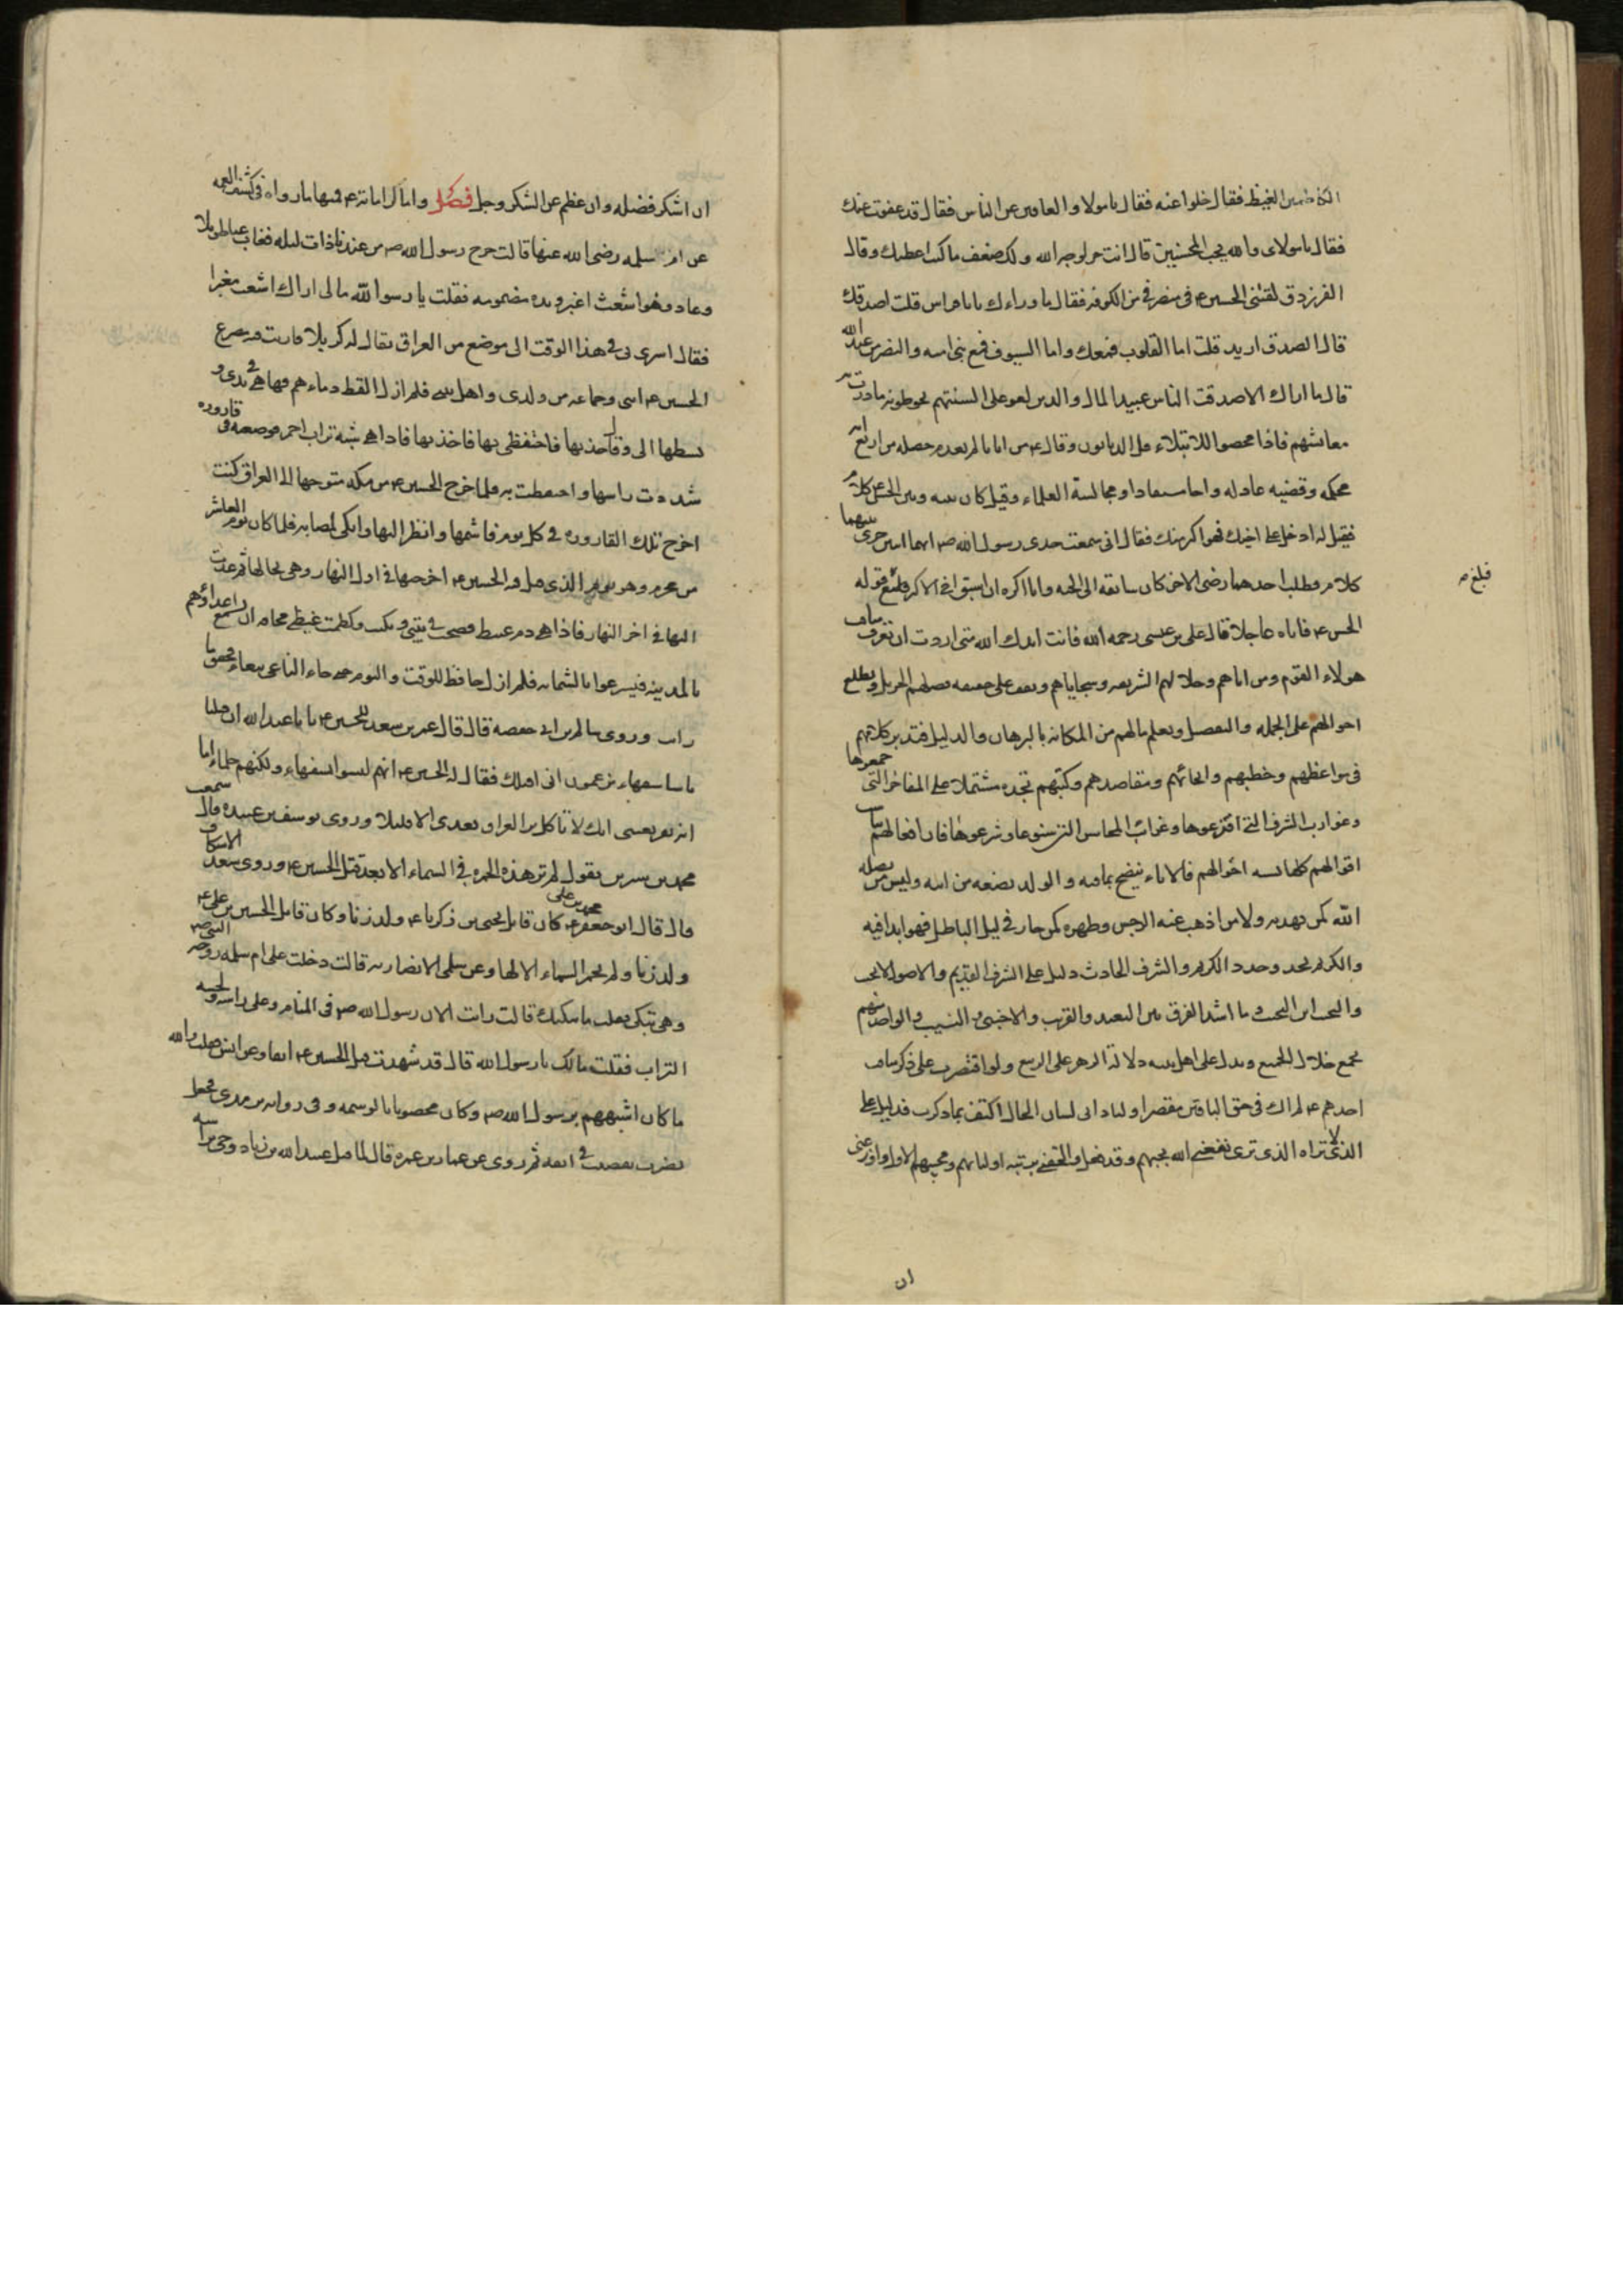 الكاظمين الغيظ فقال خلوا عنه فقال يا مولاى والعافين عن الناس فقال قد عفوت عنك
فقال يا مولاى والله يحب المحسنين قال انت حر لوجه الله ولك ضعف ما كنت اعطيك وقال
الفرزدق لقينى الحسين ع فى منصرفى من الكوفه فقال ما وراءك يا ابا فراس قلت اصدقك
قال الصدق اريد قلت اما القلوب فمعك واما السيوف فمع بنى اميه والنصر من عند الله
قال ما اراك الا صدقت الناس عبيد المال والدين لغو على السنتهم يحوطونه ما درت به
معائشهم فاذا محصوا للابتلاء قل الديانون وقال ع من اتانا لم يعدم خصله من اربع ايه
محكمه وقضيه عادله واخا مستفادا ومجالسة العلماء وقيل كان بينه وبين الحسن ع كلام
فقيل له ادخل على اخيك فهو اكبر منك فقال انى سمعت جدى رسول الله ص ايما اثنين جرى بينهما
كلام فطلب احدهما رضى الاخر كان سابقه الى الجنه وانا اكره ان اسبق اخى الاكبر فبلغ قوله
فبلغ ص
الحسن ع فاتاه عاجلا قال على بن عيسى رحمه الله فانت ايدك الله متى اردت ان تعرف مناقب
هولاء القوم ومزاياهم وخلالهم الشريفه وسجاياهم وتقف على حقيقه فضلهم الجزيل وتطلع
احوالهم على الجمله والتفصيل وتعلم مالهم من المكانه بالبرهان والدليل فتدبر كلامهم
فى مواعظهم وخطبهم وانحائهم ومقاصدهم وكتبهم تجده مشتملا على المفاخر التى جمعوها
وغوارب الشرف التى افترعوها وغرائب المحاسن التى سنوها وشرعوها فان افعالهم تناسب
اقوالهم وكلها تشبه احوالهم فالاناء ينضح بما فيه والولد بضعه من ابيه وليس من يضله
الله كمن يهديه ولا من اذهب عنه الرجس وطهره كمن حار فى ليل الباطل فهو ابدا فيه
والكريم يحذو حذو الكريم والشرف الحادث دليل على الشرف القديم والاصول لا تخب
والنجيب ابن النجيب وما اشد الفرق بين البعيد والقريب والاجنبى والنسيب والواحد منهم
يجمع خلال الجميع ويدل على اهل بيته دلالة الزهر على الربيع ولو اقتصرت على ذكر مناقب
احدهم ع لم اك فى حق الباقين مقصرا ولنادانى لسان الحال اكتف بما ذكرت فدليل على
الذى لا تراه الذى ترى نفعنى الله بحبهم وقد فعل والحقنى بتربة اوليائهم ومحبيهم الاول واوزعنى
ان
ان اشكر فضله وان عظم عن الشكر وجل فصل واما كراماته ع فمنها ما رواه فى كشف الغمه
عن ام سلمه رضى الله عنها قالت خرج رسول الله ص من عندنا ذات ليله فغاب عنا طويلا
وعاد وهو اشعث اغبر ويده مضمومه فقلت يا رسول الله مالى اراك اشعث مغبرا
فقال اسرى بى فى هذا الوقت الى موضع من العراق يقال له كربلا فاريت فيه مصرع
الحسين ع ابنى وجماعه من ولدى واهل بيتى فلم ازل القط دماءهم فها هى فى يدى و
بسطها الى وقال خذيها فاحتفظى بها فاخذتها فاذا هى شبه تراب احمر فوضعته فى قاروره
شددت راسها واحتفظت به فلما خرج الحسين ع من مكه متوجها الى العراق كنت
اخرج تلك القاروره فى كل يوم فاشمها وانظر اليها وابكى لمصابه فلما كان يوم العاشر
من محرم وهو اليوم الذى قتل فيه الحسين ع اخرجتها فى اول النهار وهى بحالها ثم عدت
اليها فى اخر النهار فاذا هى دم عبيط فصحت فى بيتى وبكيت وكظمت غيظى مخافه ان يسمع اعداؤهم
بالمدينه فيسرعوا بالشماته فلم ازل حافظا للوقت واليوم حتى جاء الناعى ينعاه فحقق ما
رايت وروى سالم بن ابى حفصه قال قال عمر بن سعد للحسين ع يا ابا عبد الله ان قبلنا
ناسا سفهاء يزعمون انى اقتلك فقال له الحسين ع انهم ليسوا سفهاء ولكنهم حلماء اما
انه يقر بعينى انك لا تاكل بر العراق بعدى الا قليلا وروى يوسف بن عبيده قال سمعت
محمد بن سيرين يقول لم تر هذه الحمره فى السماء الا بعد قتل الحسين ع وروى سعد الاسكاف
قال قال ابو جعفر محمد بن على ع كان قاتل يحيى بن زكريا ع ولد زنا وكان قاتل الحسين بن على ع
ولد زنا ولم تحمر السماء الا لهما وعن سلمى الانصاريه قالت دخلت على ام سلمه زوجه النبى ص
وهى تبكى فقلت ما يبكيك قالت رايت الان رسول الله ص فى المنام وعلى راسه ولحيته
التراب فقلت مالك يا رسول الله قال قد شهدت قتل الحسين ع انفا وعن انس
ما كان اشبههم برسول الله ص وكان مخضوبا بالوسمه وفى روايه ترمذى فجعل
يضرب بقضيب فى انفه ثم روى عن عمار بن عميره قال لما قتل عبيد الله بن زياد وجئ براسه